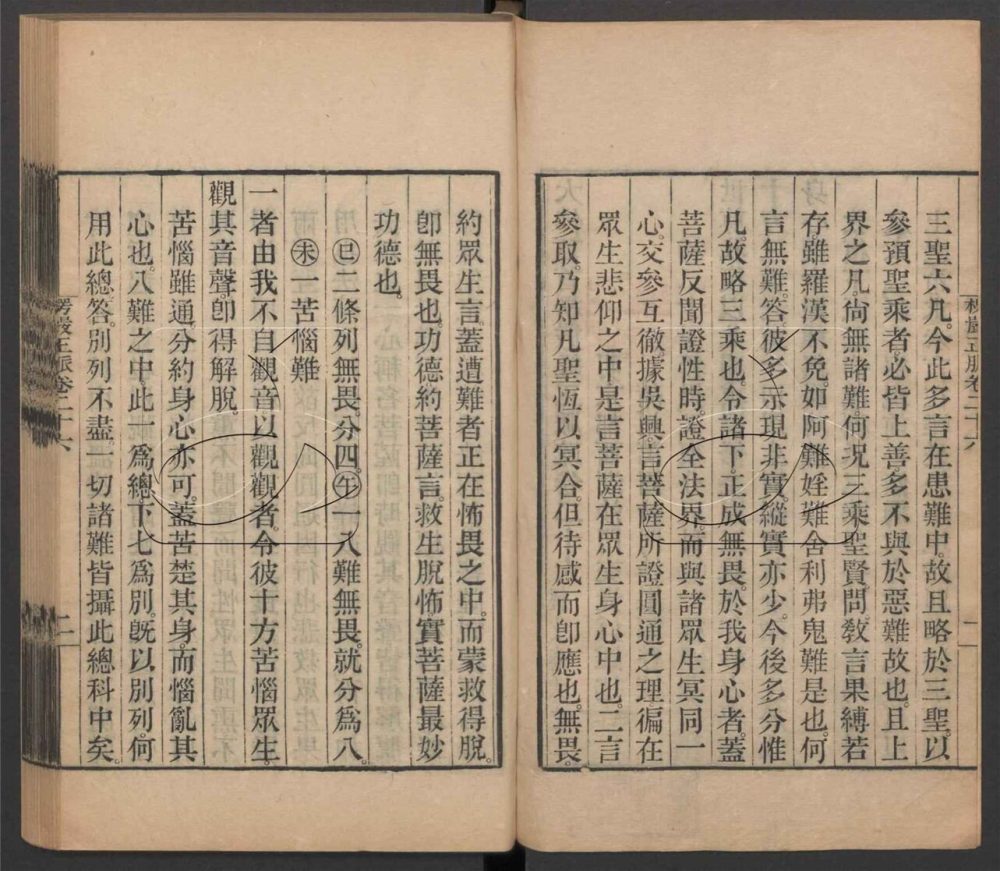 三聖六凡。今此多言在患難中。故且略於三聖。以
參預聖乘者。必皆上善。多不與於惡難故也。且上
界之凡尚無諸難。何況三乘聖賢。問。敎言果縛若
存。雖羅漢不免。如阿難婬難。舍利弗鬼難是也。何
言無難。答。彼多示現非實。縱實亦少。今後多分惟
凡。故略三乘也。令諸下。正成無畏。於我身心者。蓋
菩薩反聞證性時。證全法界。而與諸眾生冥同一
心。交參互徹。據吳興言。菩薩所證圓通之理徧在
眾生悲仰之中。是言菩薩在眾生身心中也。二言
參取。乃知凡聖恆以冥合。但待感而卽應也。無畏。
楞嚴正脈卷二十六
約眾生言。蓋遭難者正在怖畏之中。而蒙救得脫。
卽無畏也。功德約菩薩言。救生脫怖實菩薩最妙
功德也。
㊁二條列無畏。分四。㊍一八難無畏。就分爲八。
㊍一苦惱難
一者由我不自觀音以觀觀者。令彼十方苦惱眾生。
觀其音聲。卽得解脫。
苦惱雖通。分約身心亦可。蓋苦楚其身。而惱亂其
心也。八難之中。此一爲總。下七爲別。旣以別列。何
用此總。答。別列不盡。一切諸難皆攝此總科中矣。
楞嚴正脈卷二十六
二